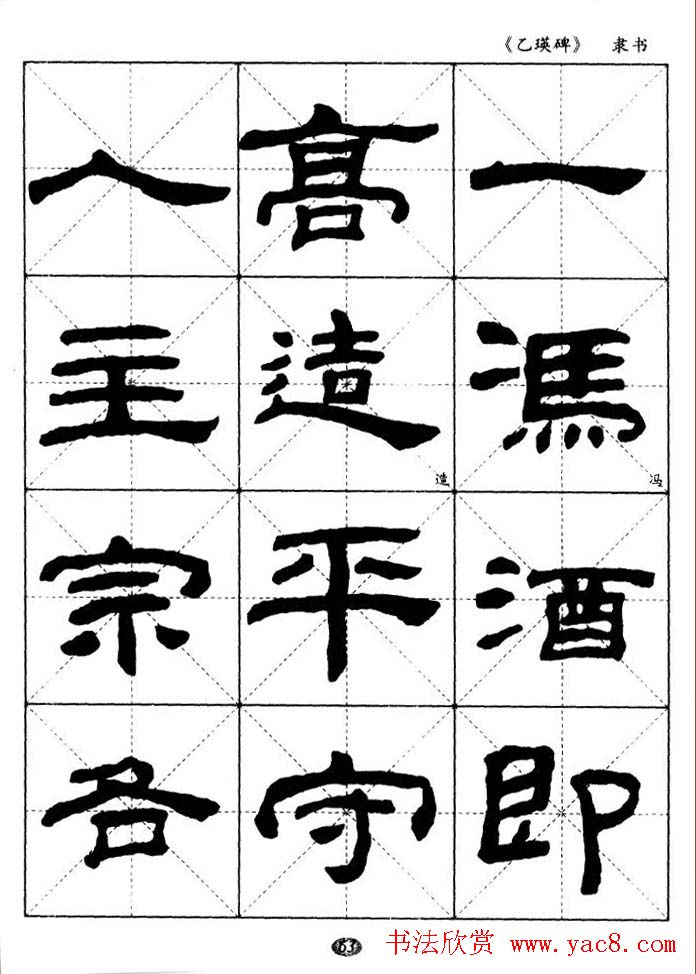 《乙瑛碑》 隶书
一馮酒即
冯
高造平守
造
人主宗各
63
书法欣赏 www.yac8.com